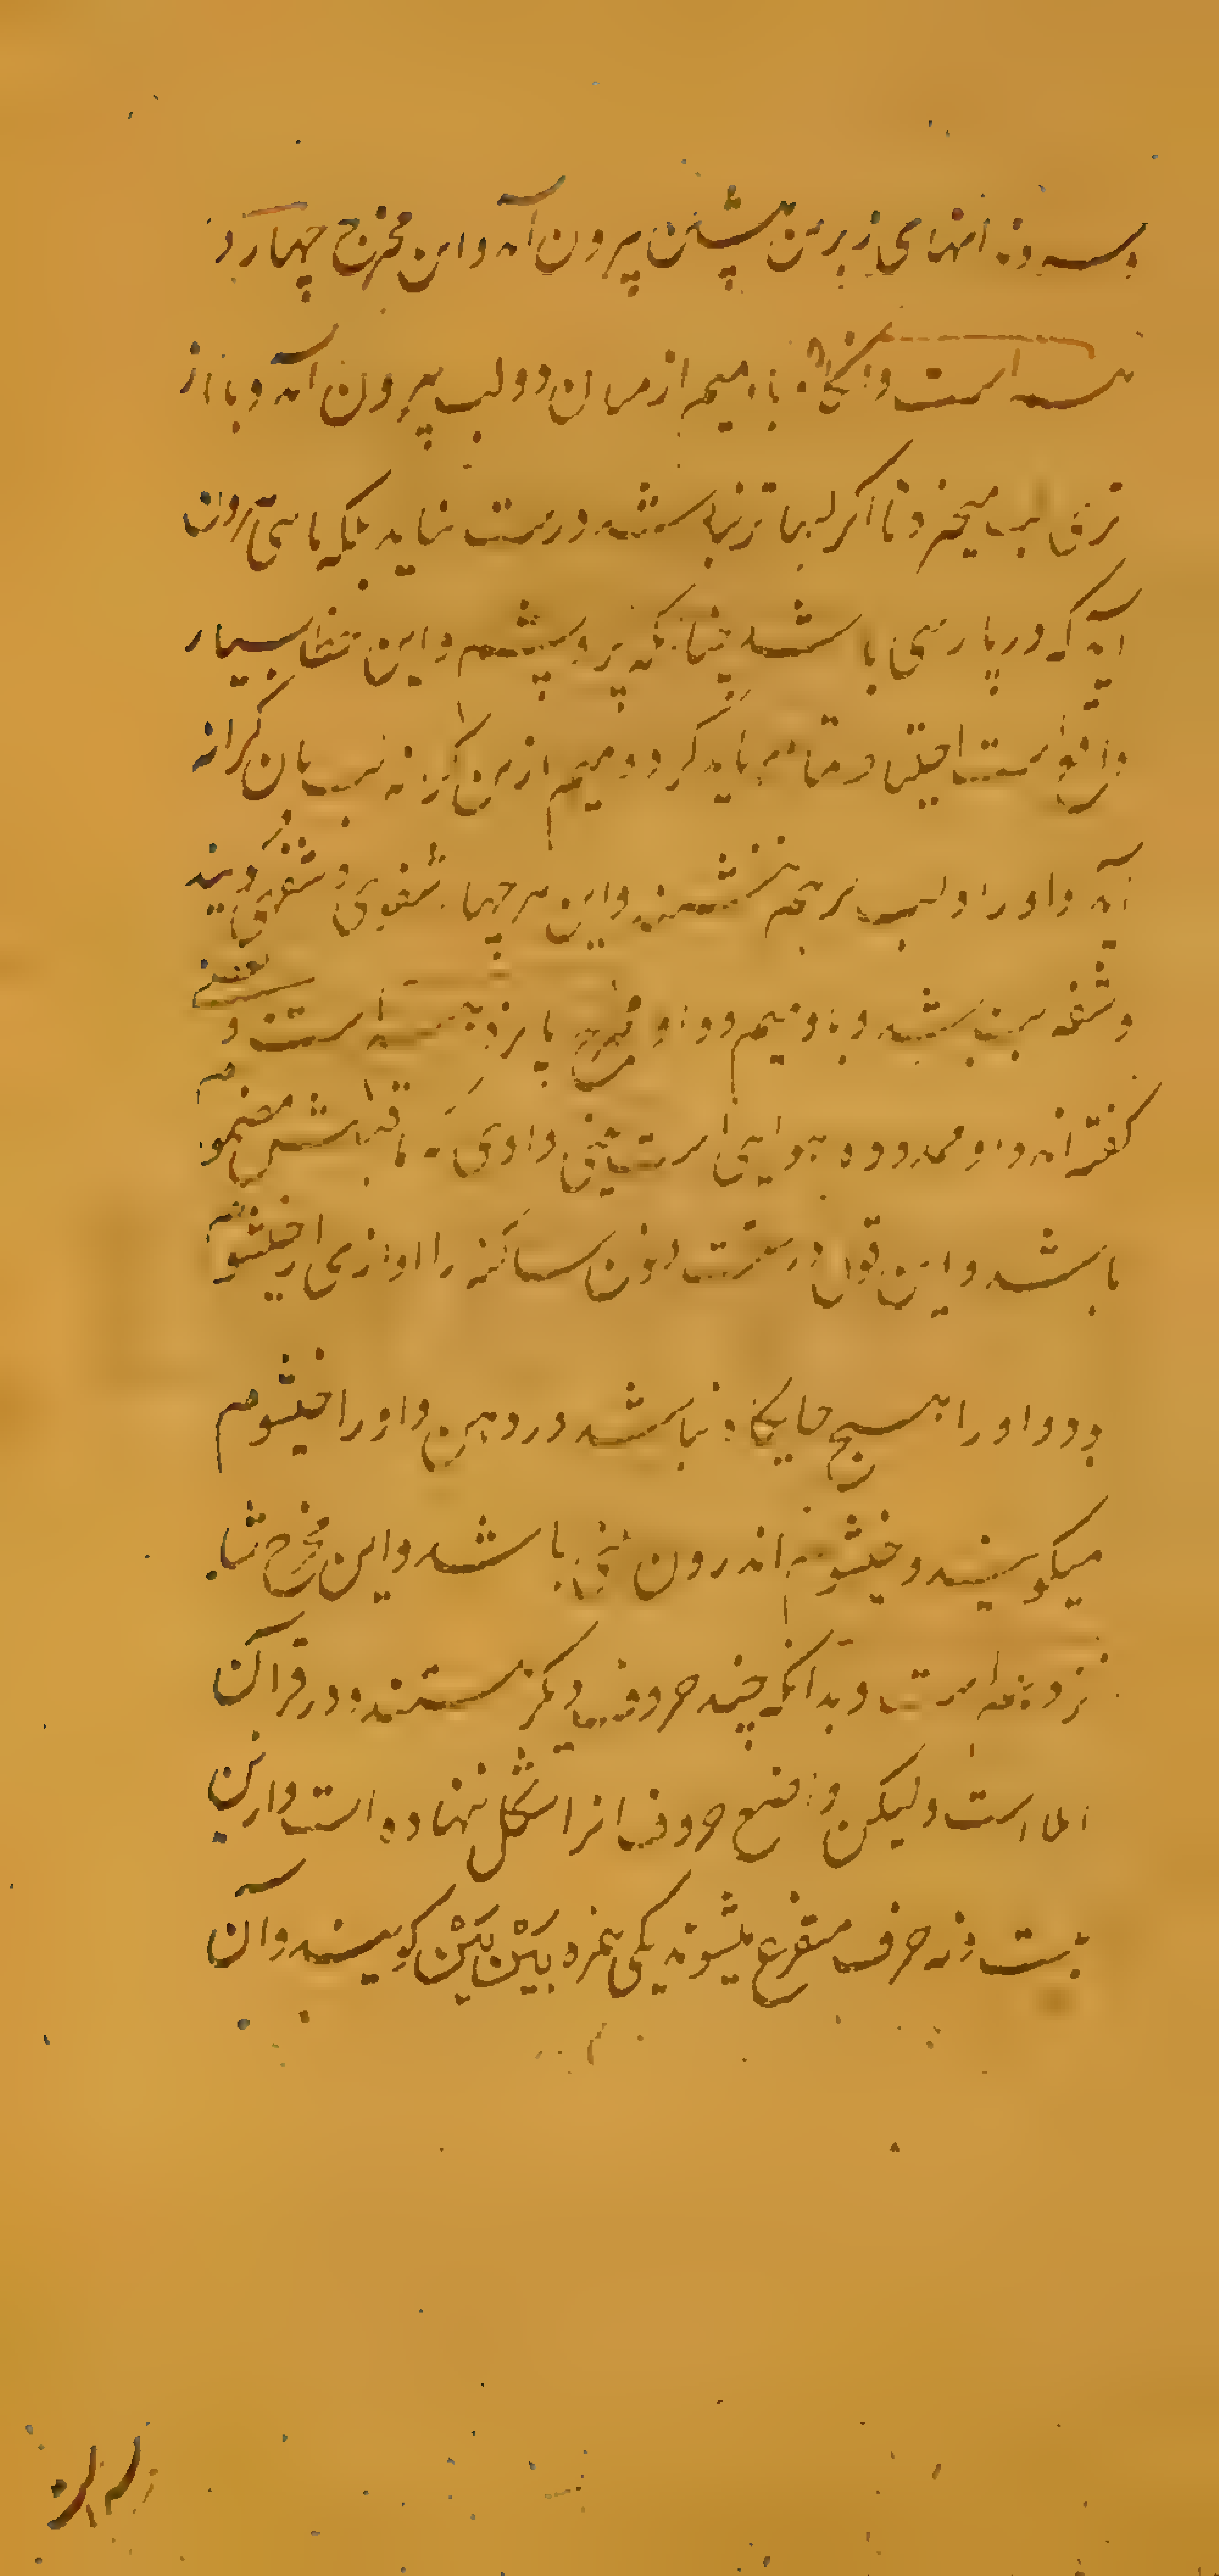 و سر دندانهای زبرین پیشین بیرون آید و این مخرج چهارد
است و آنگاه با و میم از میان دو لب بیرون آید و با از
تری لب میخیزد تا اگر لبها تر نباشد درست نیاید بلکه بائی بیرون
آید که در پارسی باشد چنانکه پر و پشم و این خطا بسیار
واقع است احتیاط تمام باید کرد و میم ازین کرانه لب بان کرانه
آید واو را دو لب برهم ننشیند و این هر جها شفوی و شفهی گویند
و شفه لب باشد و با و میم و واو مخرج پانزدهم است و بعضی
گفته اند واو ممدوده هوایی است یعنی واوی که ماقبلش مضموم
باشد و این قول درست نون ساکنه را اوازی از خیشوم
بود و او را هیچ جایگاه نباشد در دهن و او را خیشوم
میگویند و خیشوم اندرون بینی باشد و این مخرج شا
نزدهم است و بدانکه چند حروف دیگر هستند و در قرآن
اما است ولیکن واضع حروف انرا شکل ننهاده است و ازین
بیست و نه حرف متفرع میشوند یکی همزه بین بین گویند و آن